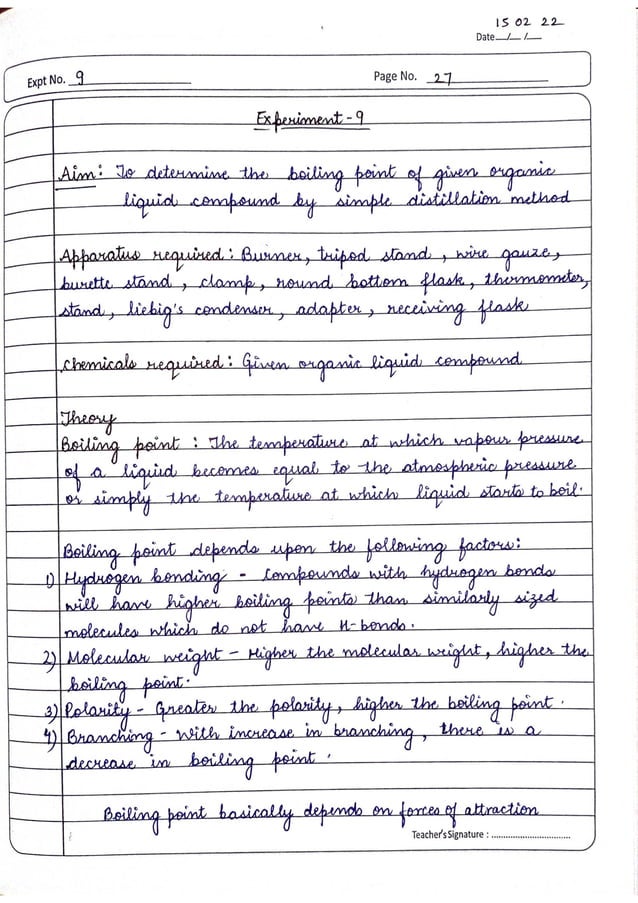 15 02 22
Date __/__/__
Expt No. 9
Page No. 27
Experiment-9
Aim: To determine the boiling point of given organic
liquid compound by simple distillation method
Apparatus required: Burner, tripod stand, wire gauze,
burette stand, clamp, round bottom flask, thermometer,
stand, liebig's condenser, adapter, receiving flask
Chemicals required: Given organic liquid compound
Theory
Boiling point: The temperature at which vapour pressure
of a liquid becomes equal to the atmospheric pressure
or simply the temperature at which liquid starts to boil.
Boiling point depends upon the following factors:
1) Hydrogen bonding - Compounds with hydrogen bonds
will have higher boiling points than similarly sized
molecules which do not have H-bonds.
2) Molecular weight - Higher the molecular weight, higher the
boiling point.
3) Polarity - Greater the polarity, higher the boiling point.
4) Branching - With increase in branching, there is a
decrease in boiling point.
Boiling point basically depends on forces of attraction
Teacher's Signature : ................................